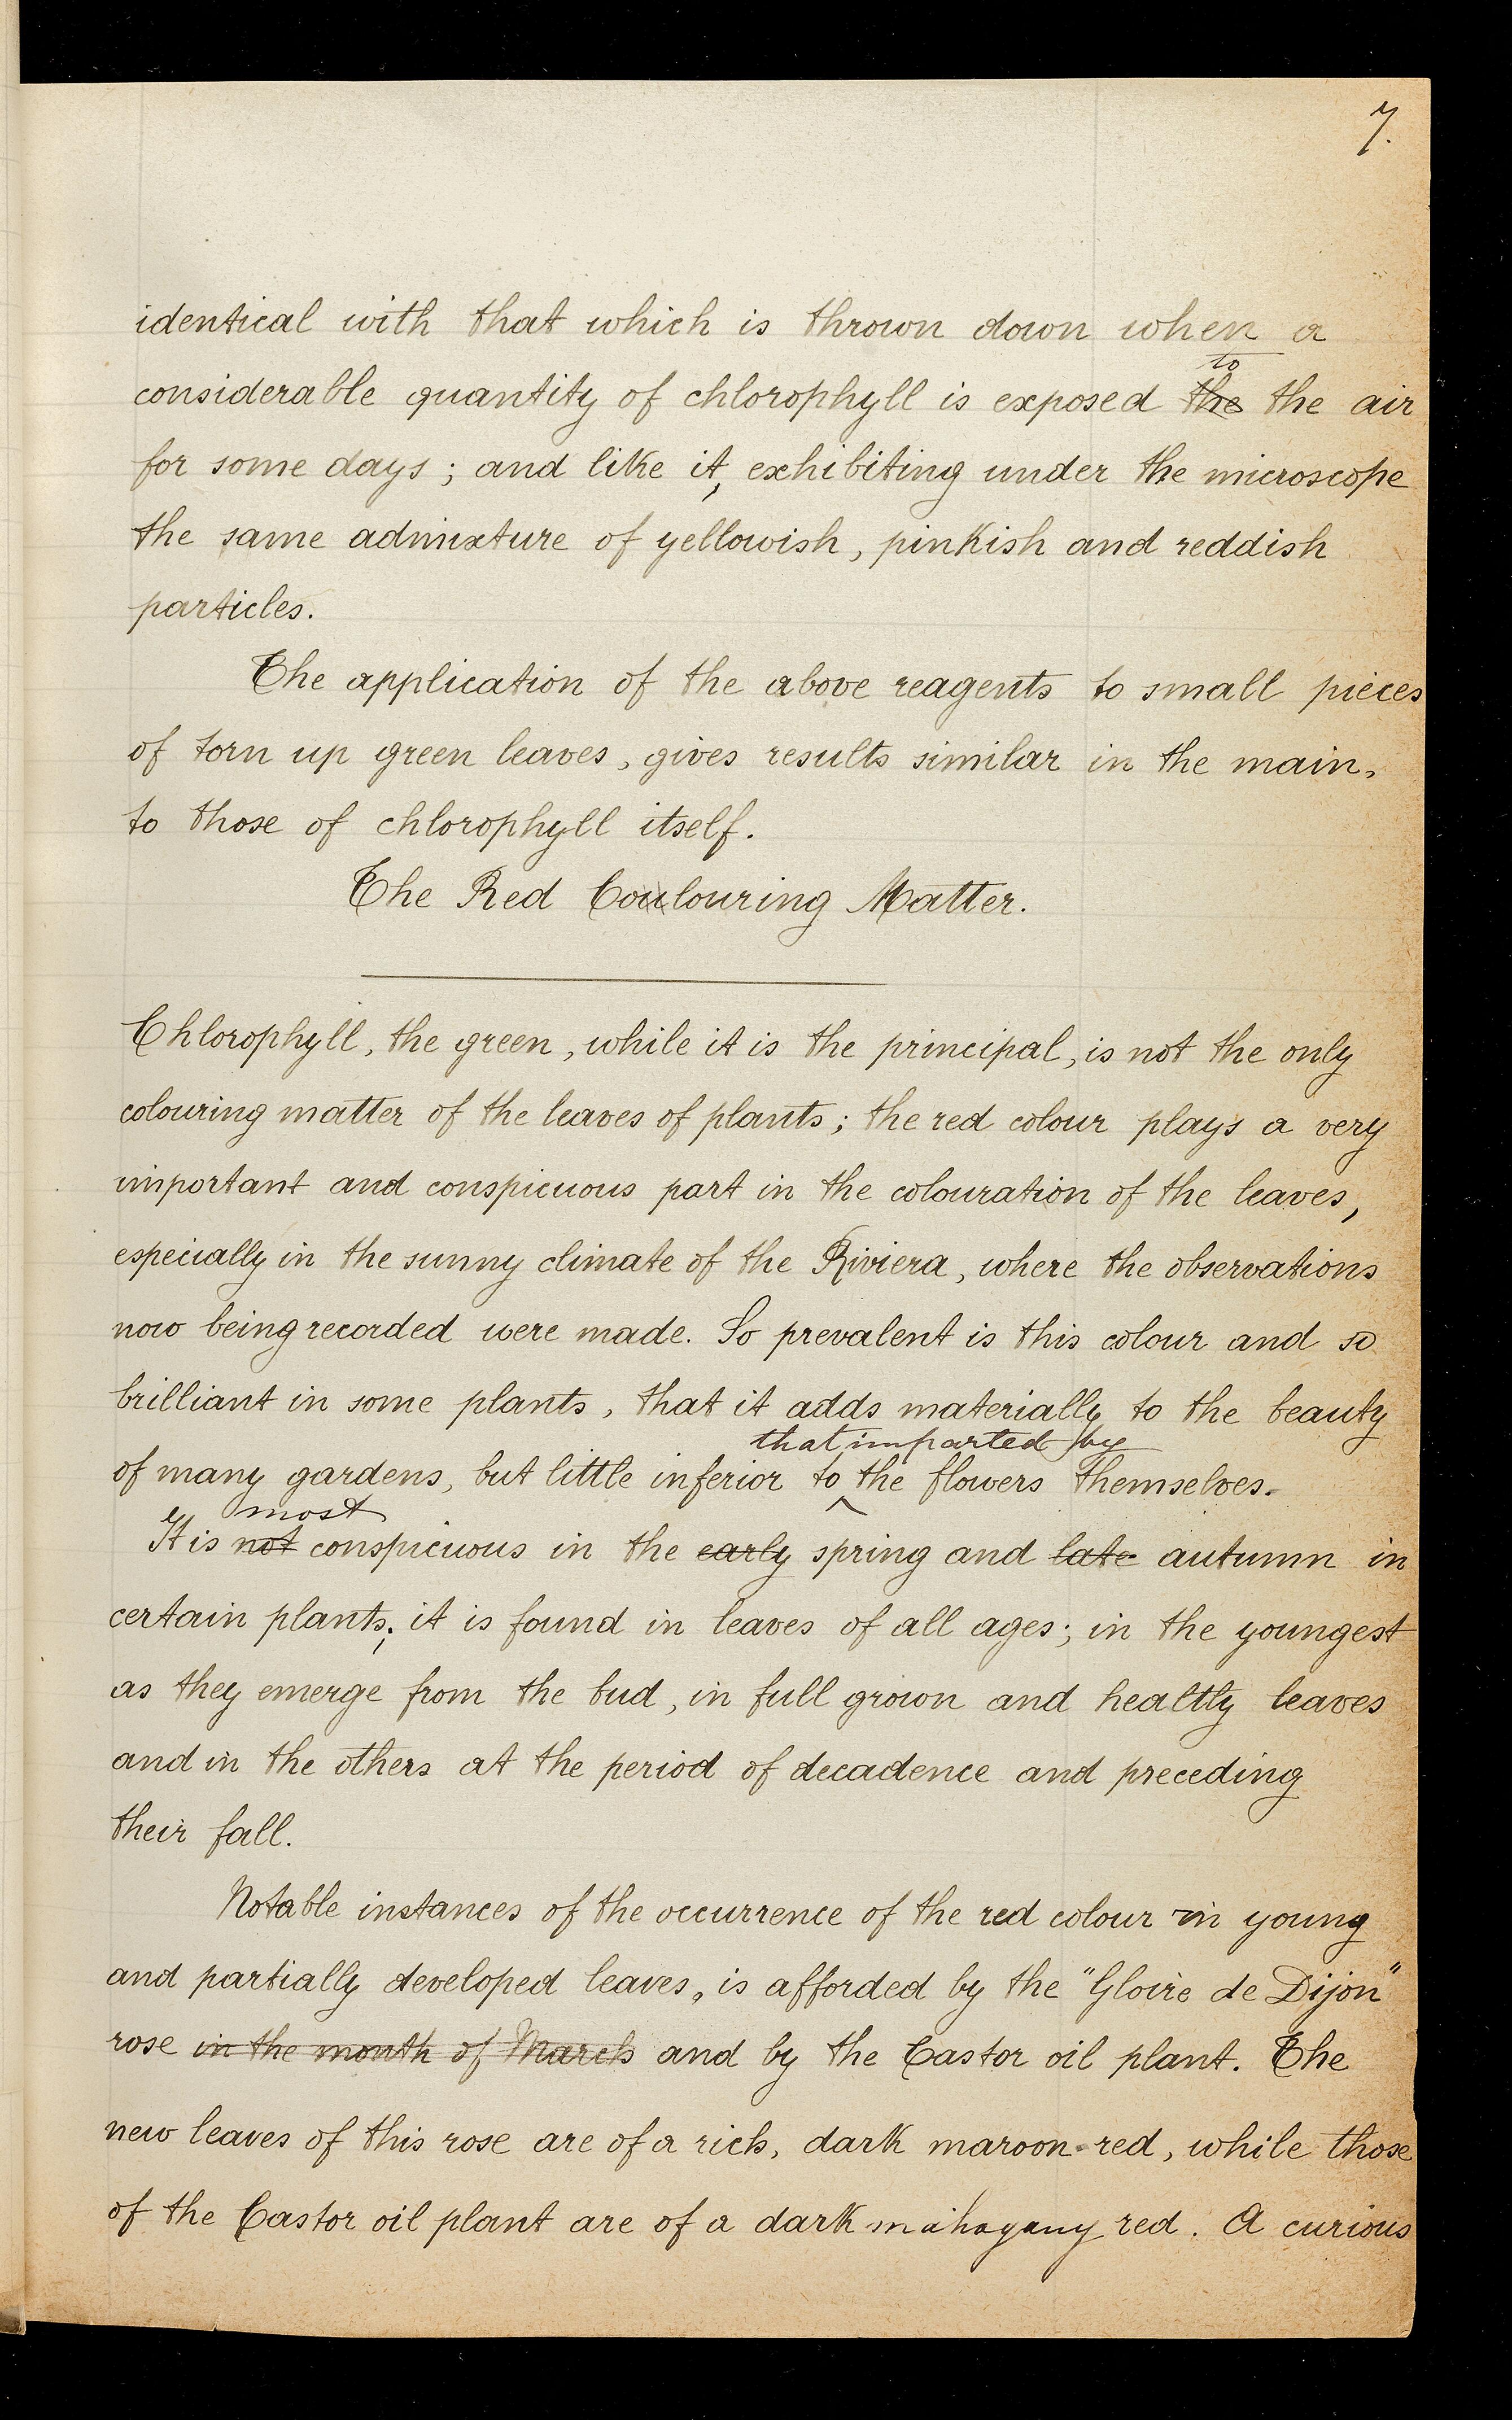 7.
identical with that which is thrown down when a
to
considerable quantity of chlorophyll is exposed the the air
for some days; and like it, exhibiting under the microscope
the same admixture of yellowish, pinkish and reddish
particles.
The application of the above reagents to small pieces
of torn up green leaves, gives results similar in the main,
to those of chlorophyll itself.
The Red Coulouring Matter.
Chlorophyll, the green, while it is the principal, is not the only
colouring matter of the leaves of plants; the red colour plays a very
important and conspicuous part in the colouration of the leaves,
especially in the sunny climate of the Riviera, where the observations
now being recorded were made. So prevalent is this colour and so
brilliant in some plants, that it adds materially to the beauty
that imparted by
of many gardens, but little inferior to ^ the flowers themselves.
most
It is not conspicuous in the early spring and late autumn in
certain plants; it is found in leaves of all ages; in the youngest
as they emerge from the bud, in full grown and healthy leaves
and in the others at the period of decadence and preceding
their fall.
Notable instances of the occurrence of the red colour in young
and partially developed leaves, is afforded by the "Gloire de Dijon"
rose in the month of March and by the Castor oil plant. The
new leaves of this rose are of a rich, dark maroon-red, while those
of the Castor oil plant are of a dark mahogany red. A curious